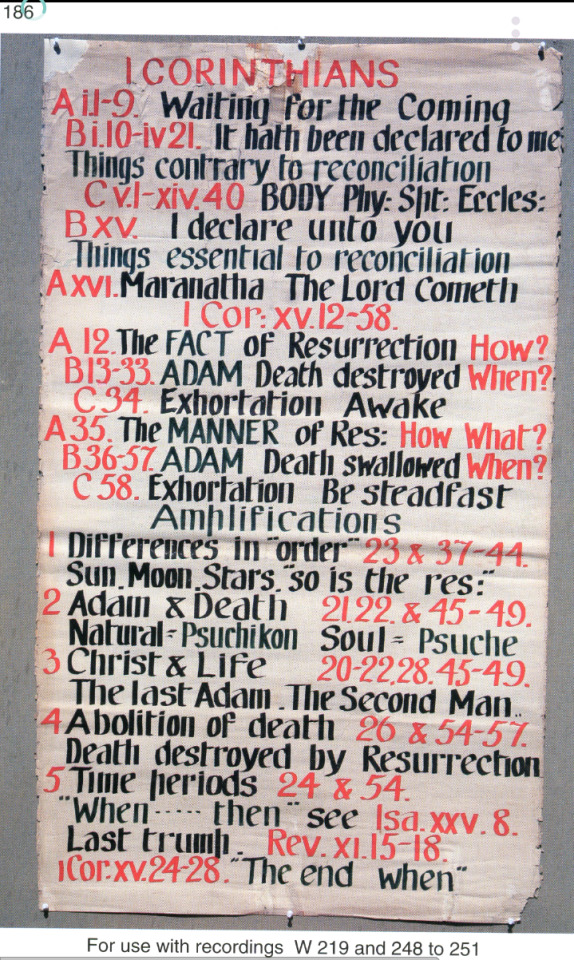 186
I CORINTHIANS
A i.1-9. Waiting for the Coming
B i.10-iv 21. It hath been declared to me
Things contrary to reconciliation
C v.1-xiv.40 BODY Phy: Spt: Eccles:
B xv. I declare unto you
Things essential to reconciliation
A xvi. Maranatha The Lord Cometh
I Cor: xv.12-58.
A 12. The FACT of Resurrection How?
B 13-33. ADAM Death destroyed When?
C 34. Exhortation Awake
A 35. The MANNER of Res: How What?
B 36-57. ADAM Death swallowed When?
C 58. Exhortation Be steadfast
Amplifications
1 Differences in "order" 23 & 37-44.
Sun. Moon. Stars. "so is the res:"
2 Adam & Death 21.22. & 45-49.
Natural = Psuchikon Soul = Psuche
3 Christ & Life 20-22,28. 45-49.
The last Adam. The Second Man..
4 Abolition of death 26 & 54-57.
Death destroyed by Resurrection
5 Time periods 24 & 54.
"When ..... then" see Isa. xxv. 8.
Last trump. Rev. xi. 15-18.
1 Cor. xv. 24-28. "The end when"
For use with recordings W 219 and 248 to 251